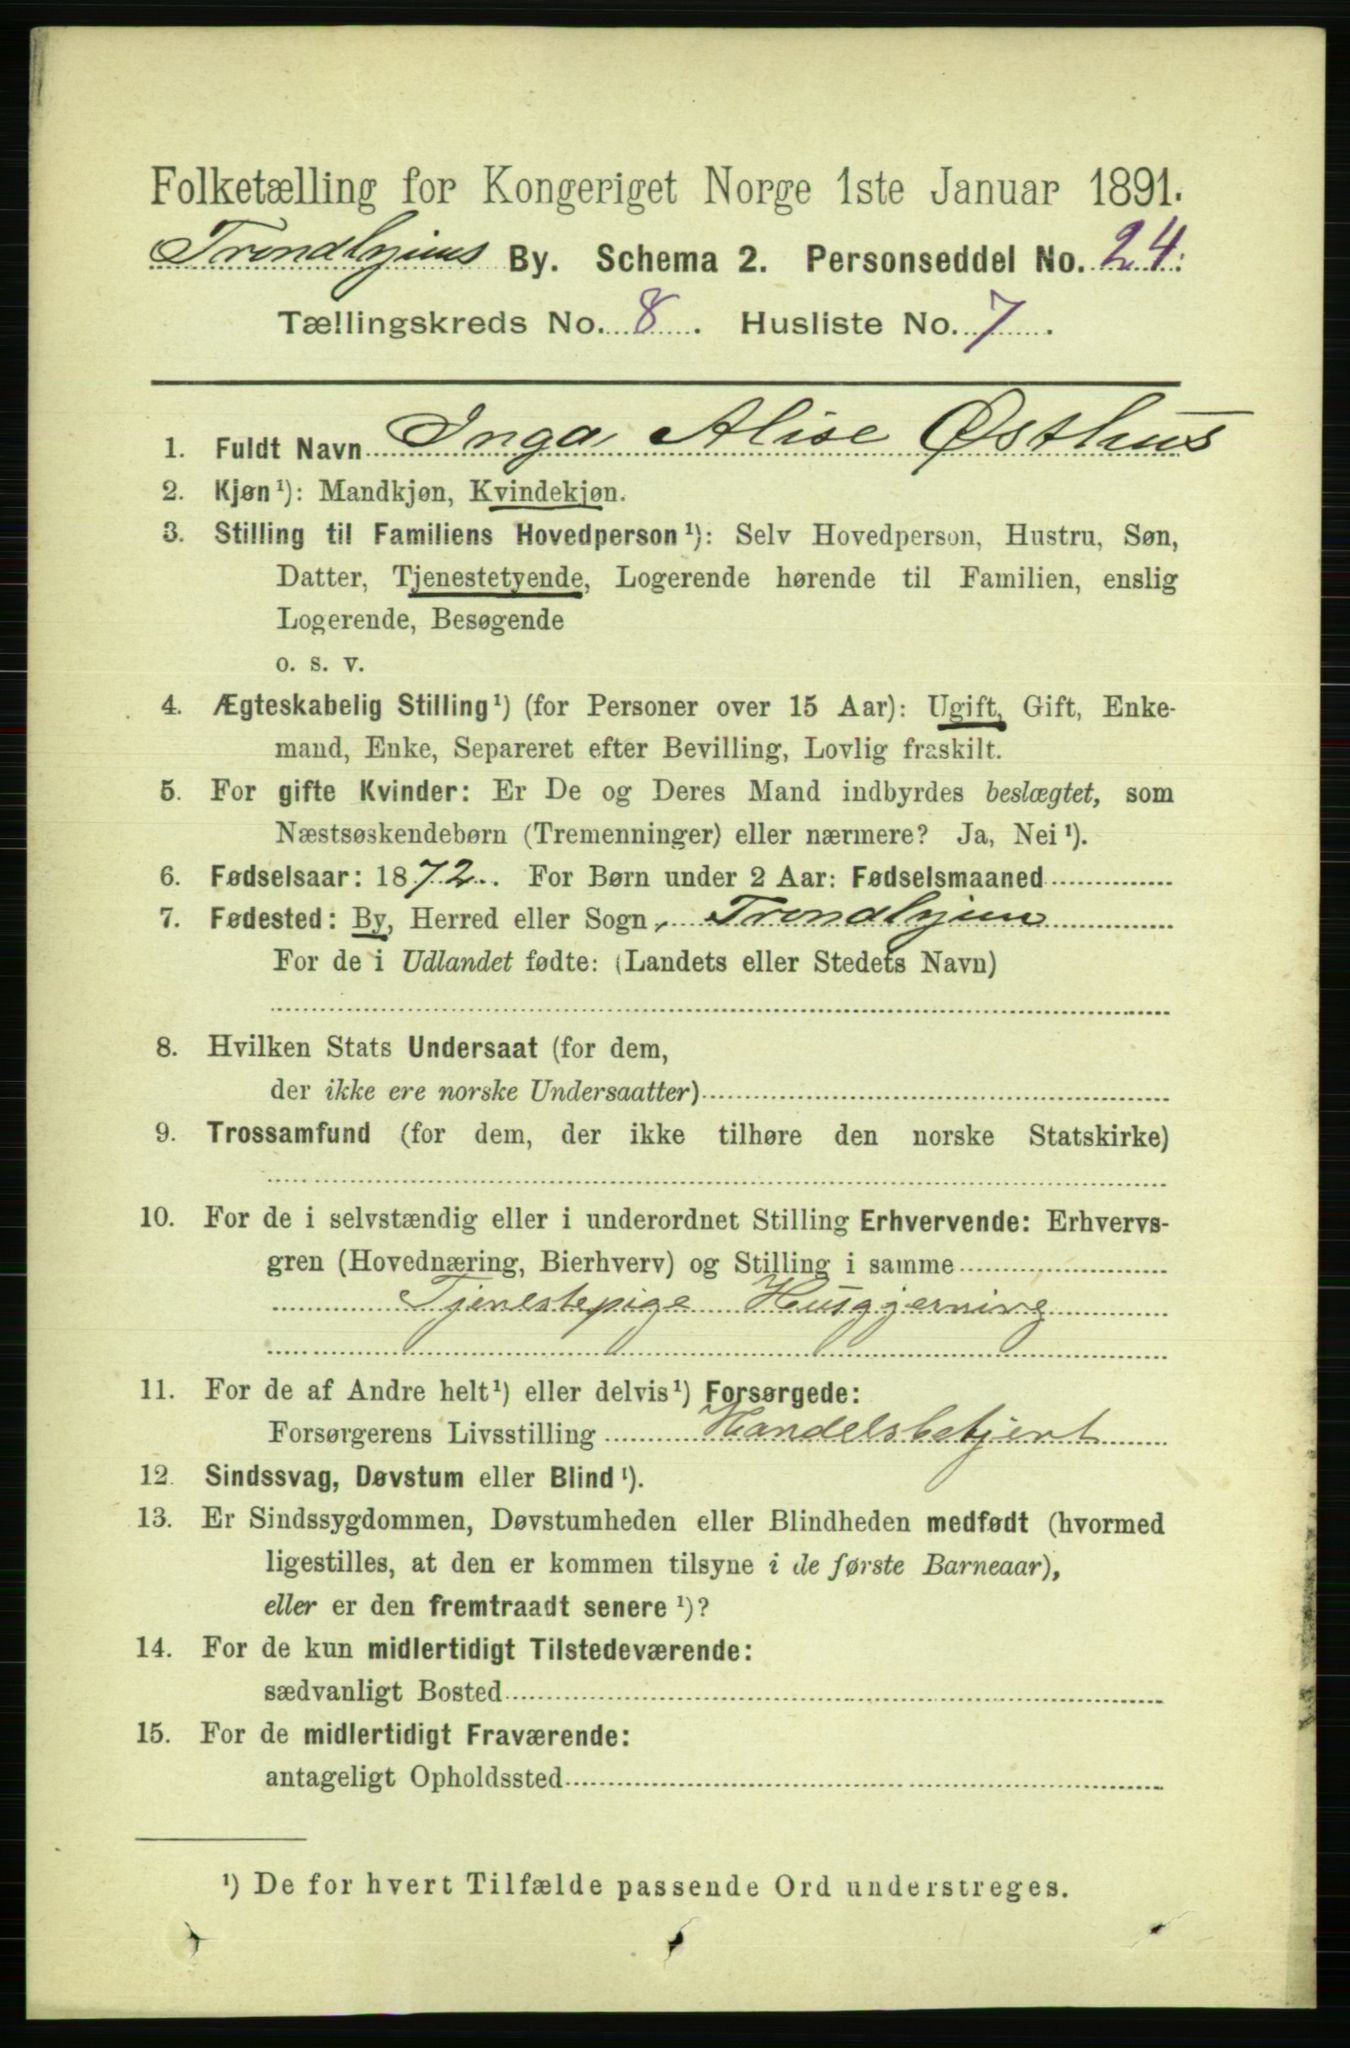 Folketælling for Kongeriget Norge 1ste Januar 1891.
Trondhjems By. Schema 2. Personseddel No. 24.
Tællingskreds No. 8. Husliste No. 7.
1. Fuldt Navn Inga Alise Østhus
2. Kjøn¹): Mandkjøn, Kvindekjøn.
3. Stilling til Familiens Hovedperson¹): Selv Hovedperson, Hustru, Søn,
Datter, Tjenestetyende, Logerende hørende til Familien, enslig
Logerende, Besøgende
o. s. v.
4. Ægteskabelig Stilling¹) (for Personer over 15 Aar): Ugift, Gift, Enke-
mand, Enke, Separeret efter Bevilling, Lovlig fraskilt.
5. For gifte Kvinder: Er De og Deres Mand indbyrdes beslægtet, som
Næstsøskendebørn (Tremenninger) eller nærmere? Ja, Nei¹).
6. Fødselsaar: 1872. For Børn under 2 Aar: Fødselsmaaned
7. Fødested: By, Herred eller Sogn, Trondhjem
For de i Udlandet fødte: (Landets eller Stedets Navn)
8. Hvilken Stats Undersaat (for dem,
der ikke ere norske Undersaatter)
9. Trossamfund (for dem, der ikke tilhøre den norske Statskirke)
10. For de i selvstændig eller i underordnet Stilling Erhvervende: Erhvervs-
gren (Hovednæring, Bierhverv) og Stilling i samme
Tjenestepige Husgjerning
11. For de af Andre helt¹) eller delvis¹) Forsørgede:
Forsørgerens Livsstilling Handelsbetjent
12. Sindssvag, Døvstum eller Blind¹).
13. Er Sindssygdommen, Døvstumheden eller Blindheden medfødt (hvormed
ligestilles, at den er kommen tilsyne i de første Barneaar),
eller er den fremtraadt senere¹)?
14. For de kun midlertidigt Tilstedeværende:
sædvanligt Bosted
15. For de midlertidigt Fraværende:
antageligt Opholdssted
¹) De for hvert Tilfælde passende Ord understreges.